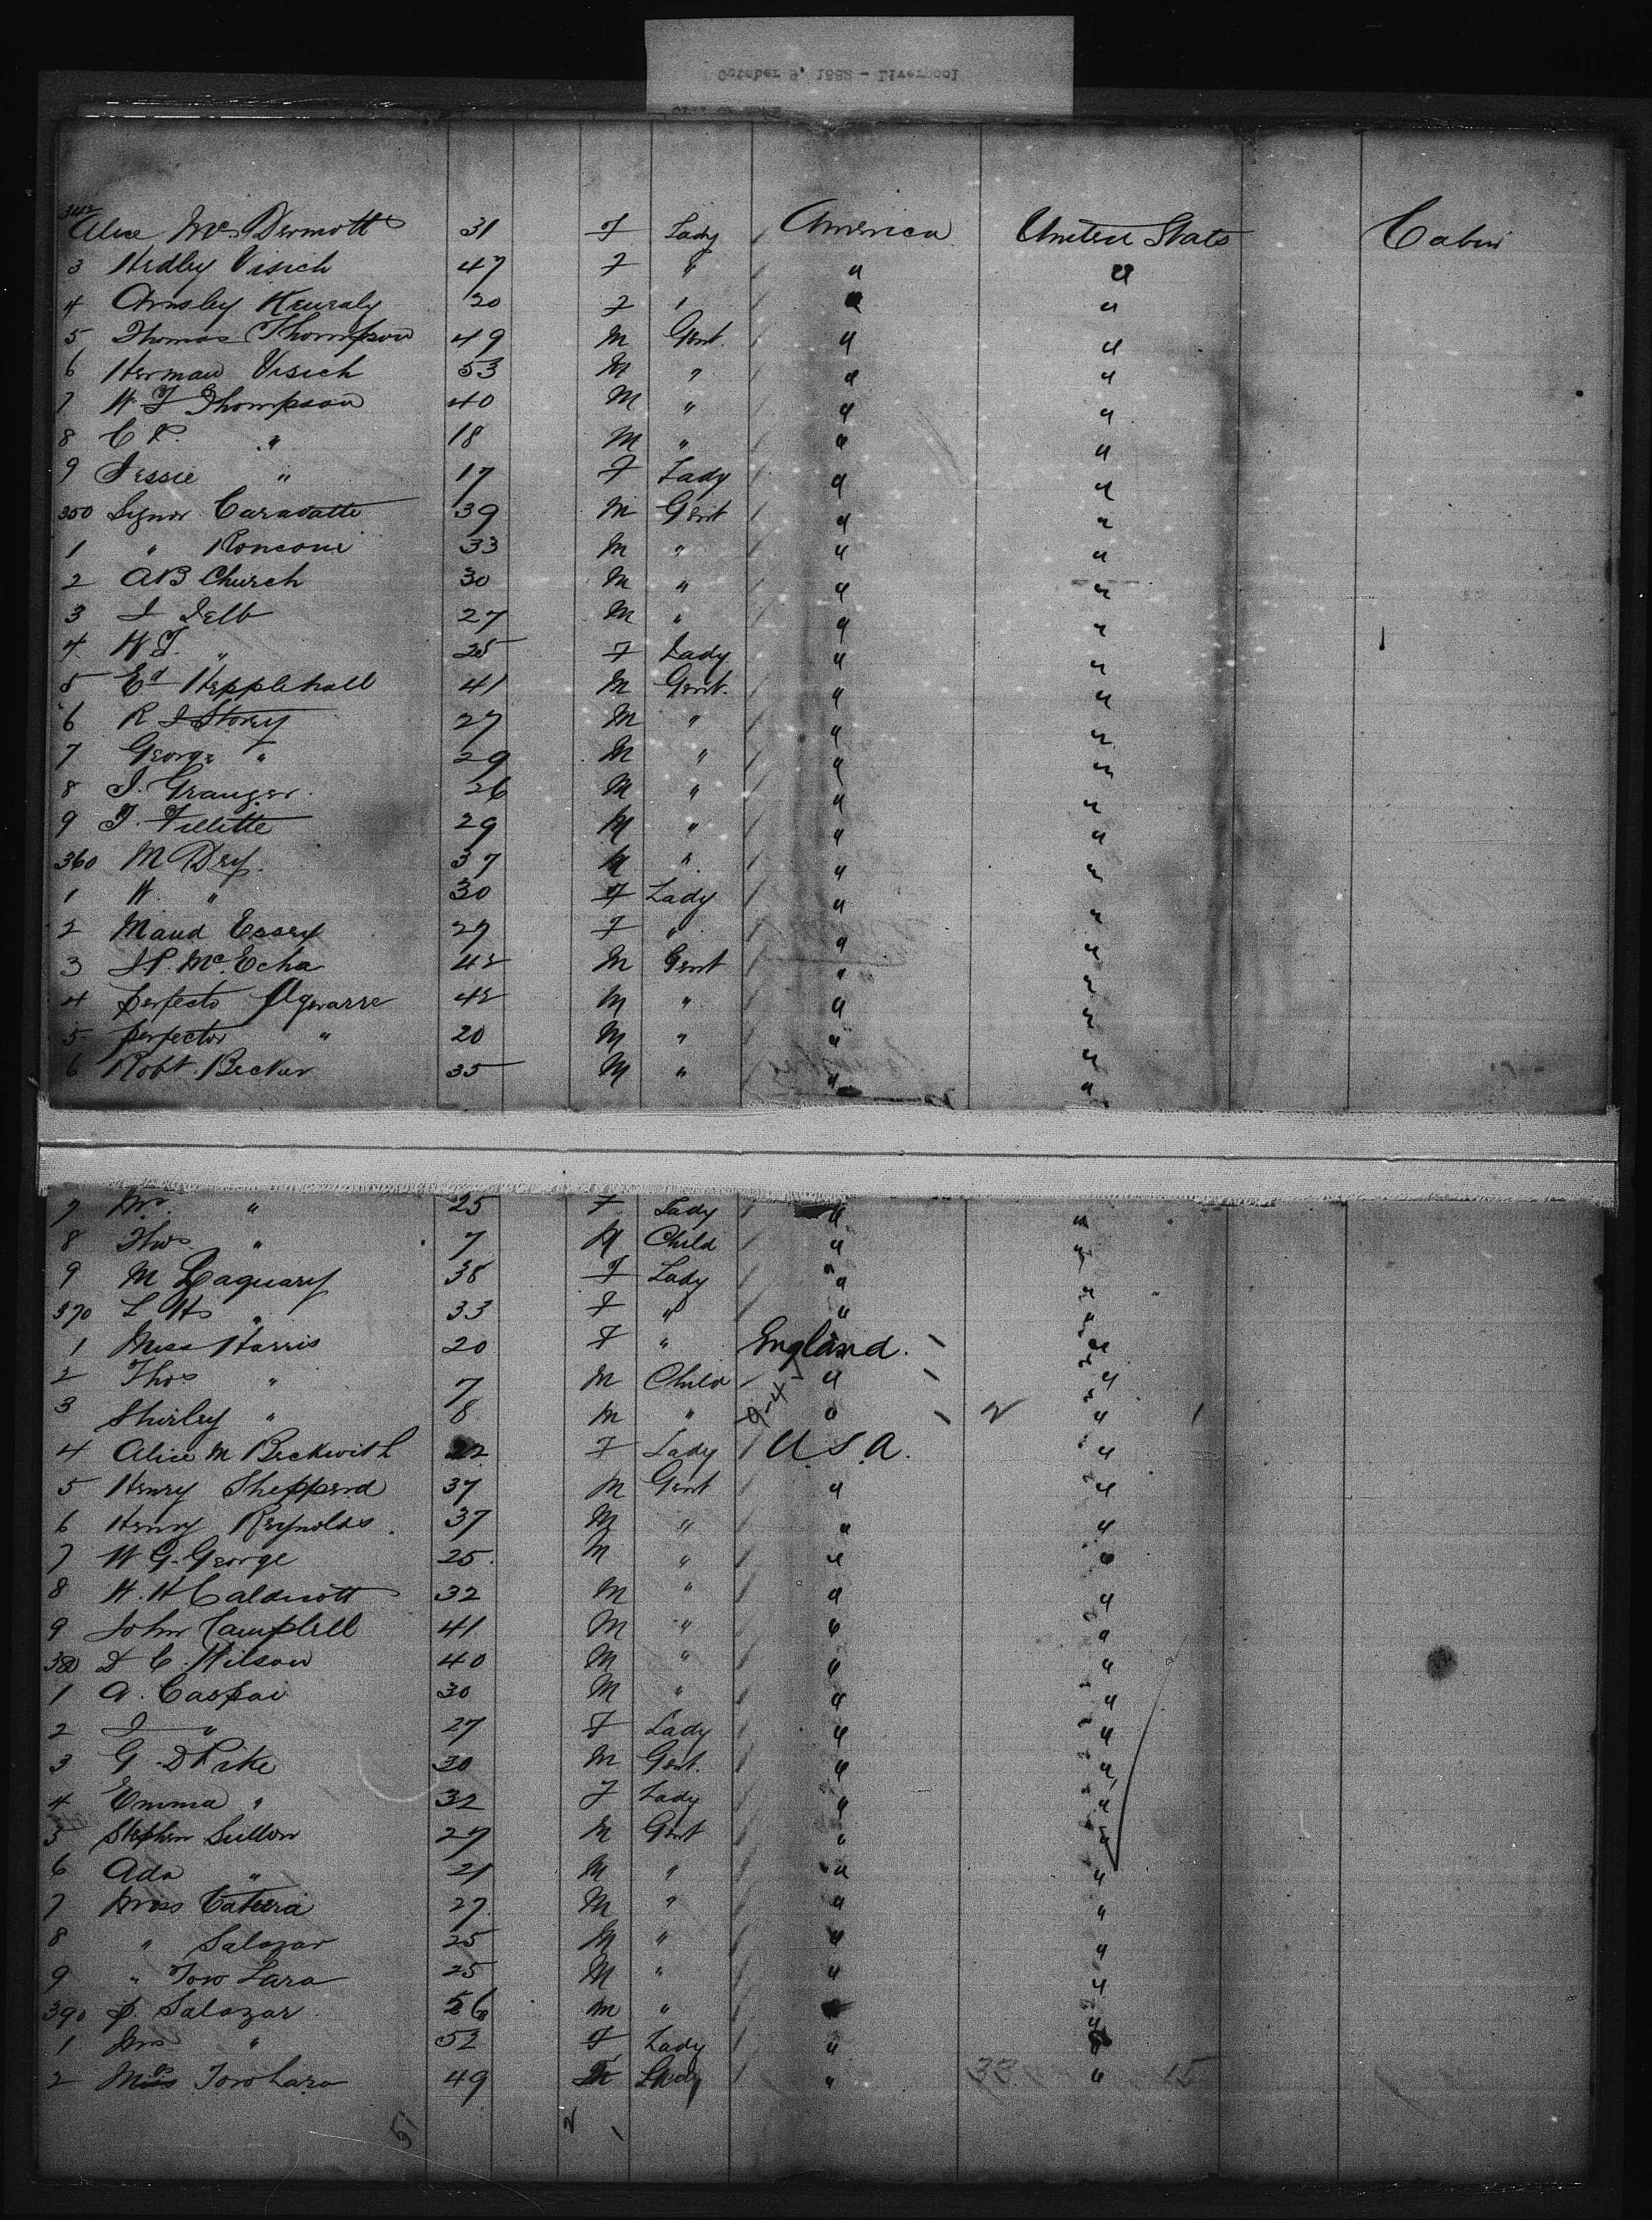 October 9, 1882 - Liverpool
342
Alice McDermott 31 F Lady / America United States Cabin
3 Hedley Visich 47 F " / " "
4 20 F " / " "
5 Thomas Thompson 49 M Gent. / " "
6 Herman Visich 53 M " / " "
7 W Thompson 40 M " / " "
8 C " 18 M " / " "
9 Jessie " 17 F Lady / " "
350 Signor Caravatti 39 M Gent / " "
1 " Ronconi 33 M " / " "
2 AB Church 30 M " / " "
3 27 M " / " "
4 " 25 F Lady / " "
5 Ed Hepplehall 41 M Gent. / " "
6 R J Storey 27 M " / " "
7 George " 29 M " / " "
8 J. Granger 26 M " / " "
9 J. Fillette 29 M " / " "
360 M Dey 37 M " / " "
1 W. " 30 F Lady / " "
2 Maud Essex 27 F " / " "
3 McEcha 42 M Gent / " "
4 Perfecto 42 M " / " "
5 Perfector " 20 M " / " "
6 Robt Becker 35 M " / " "
7 Mrs " 25 F Lady / " "
8 Thos " 7 M Child / " "
9 M Laguary 38 F Lady / " "
370 " 33 F " / " "
1 Miss Harris 20 F " England. \ "
2 Thos " 7 M Child / " \ "
3 Shirley " 8 M " " \ 2 " 1
4 Alice M Beckwith 22 F Lady / U S A. "
5 Henry Shepperd 37 M Gent " "
6 Henry Reynolds 37 M " / " "
7 W G. George 25. M " / " "
8 H. H Caldicott 32 M " / " "
9 John Campbell 41 M " / " "
380 D C. Wilson 40 M " / " "
1 A. Caspai 30 M " / " "
2 J " 27 F Lady / " "
3 G D Pike 30 M Gent. / " "
4 Emma " 32 F Lady / " "
5 Stephen Sutton 27 M Gent / " "
6 Ada " 21 M " / " "
7 Cateira 27 M " / " "
8 " Salazar 25 M " / " "
9 " Toro Lara 25 M " / " "
390 P. Salazar 56 M " / " "
1 Mrs " 52 F Lady / " "
2 Toro Lara 49 Lady / " 33 " 15
51 2 1